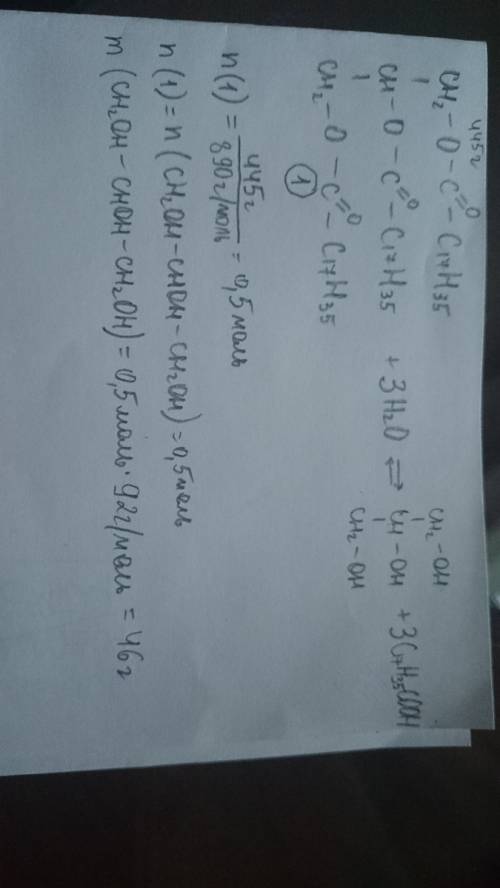 445г
CH₂ – O – C(=O) – C₁₇H₃₅
CH – O – C(=O) – C₁₇H₃₅ + 3H₂O ⇄ CH – OH + 3C₁₇H₃₅COOH
CH₂ – O – C(=O) – C₁₇H₃₅
CH₂ – OH
CH₂ – OH
①
n(1) = 445г / 890г/моль = 0,5 моль
n(1) = n(CH₂OH – CHOH – CH₂OH) = 0,5 моль
m(CH₂OH – CHOH – CH₂OH) = 0,5 моль · 92г/моль = 46г